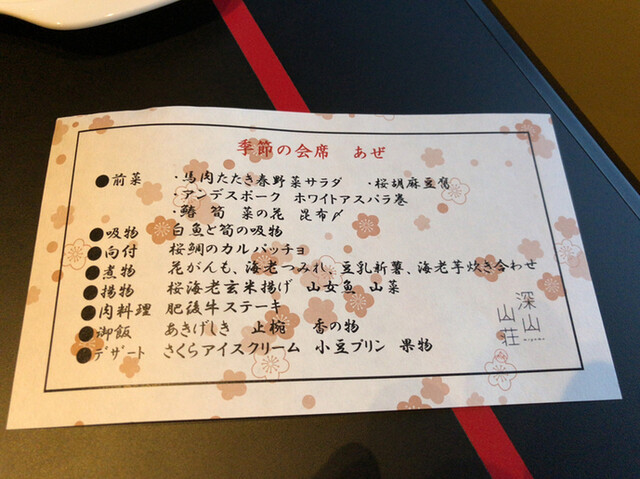 季節の会席 あぜ
●前菜 ・馬肉たたき春野菜サラダ ・桜胡麻豆腐
・アンデスポーク ホワイトアスパラ巻
・鰆 筍 菜の花 昆布〆
●吸物 白魚と筍の吸物
●向付 桜鯛のカルパッチョ
●煮物 花がんも、海老つみれ、豆乳新薯、海老芋炊き合わせ
●揚物 桜海老玄米揚げ 山女魚 山菜
●肉料理 肥後牛ステーキ
●御飯 あきげしき 止椀 香の物
●デザート さくらアイスクリーム 小豆プリン 果物
深山
山荘
miyama